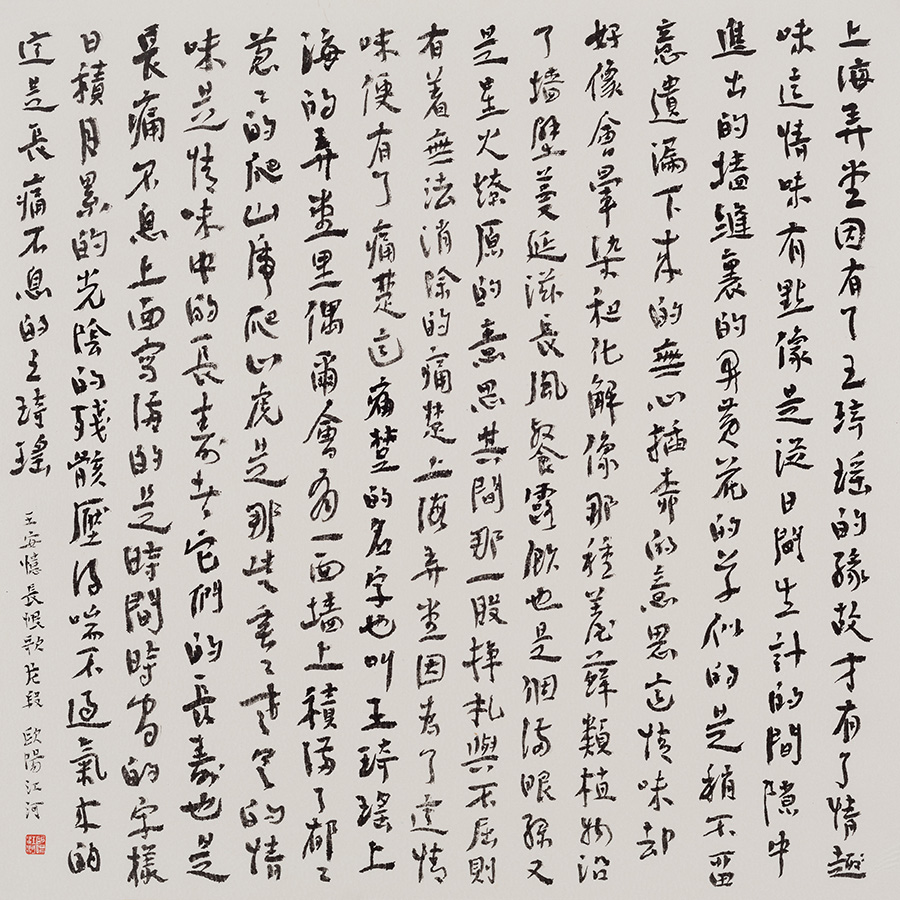 上海弄堂因有了王琦瑤的緣故才有了情趣
味這情味有點像是從日間生計的間隙中
進出的墻縫裏的開黄花的草似的是稍不畱
意遺漏下来的無心插柳的意思這情味却
好像會暈染和化解像那種苔蘚類植物沿
了墻壁蔓延滋長風餐露飲也是個滿眼綠又
是星火燎原的意思其間那一股掙扎與不屈則
有着無法消除的痛楚上海弄堂因為了這情
味便有了痛楚這痛楚的名字也叫王琦瑤上
海的弄堂里偶爾會有一面墻上積滿了郁〻
蔥〻的爬山虎爬山虎是那些垂〻老矣的情
味是情味中的長壽者它們的長壽也是
長痛不息上面寫滿的是時間時間的字樣
日積月累的光陰的殘骸壓得喘不過氣来的
這是長痛不息的王琦瑤
王安憶長恨歌片段 歐陽江河